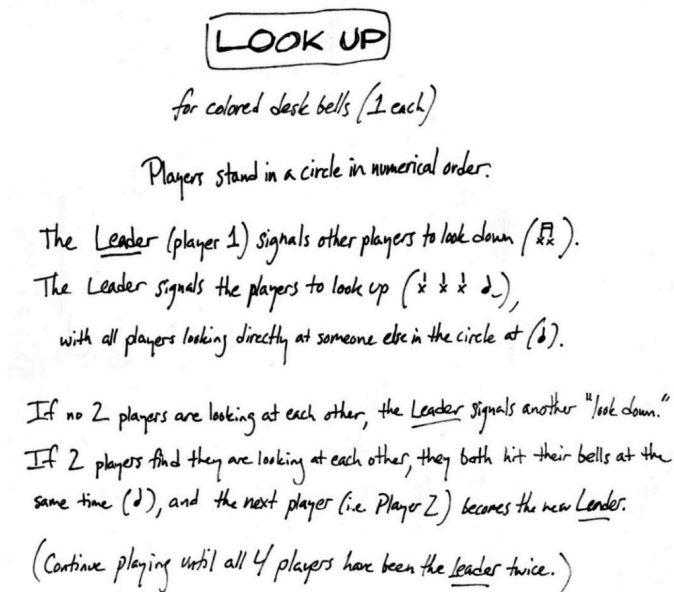 LOOK UP
for colored desk bells (1 each)
Players stand in a circle in numerical order.
The Leader (player 1) signals other players to look down (♫).
The Leader signals the players to look up (x x x ♩),
with all players looking directly at someone else in the circle at (♩).
If no 2 players are looking at each other, the Leader signals another "look down."
If 2 players find they are looking at each other, they both hit their bells at the
same time (♩), and the next player (i.e. Player 2) becomes the new Leader.
(Continue playing until all 4 players have been the Leader twice.)